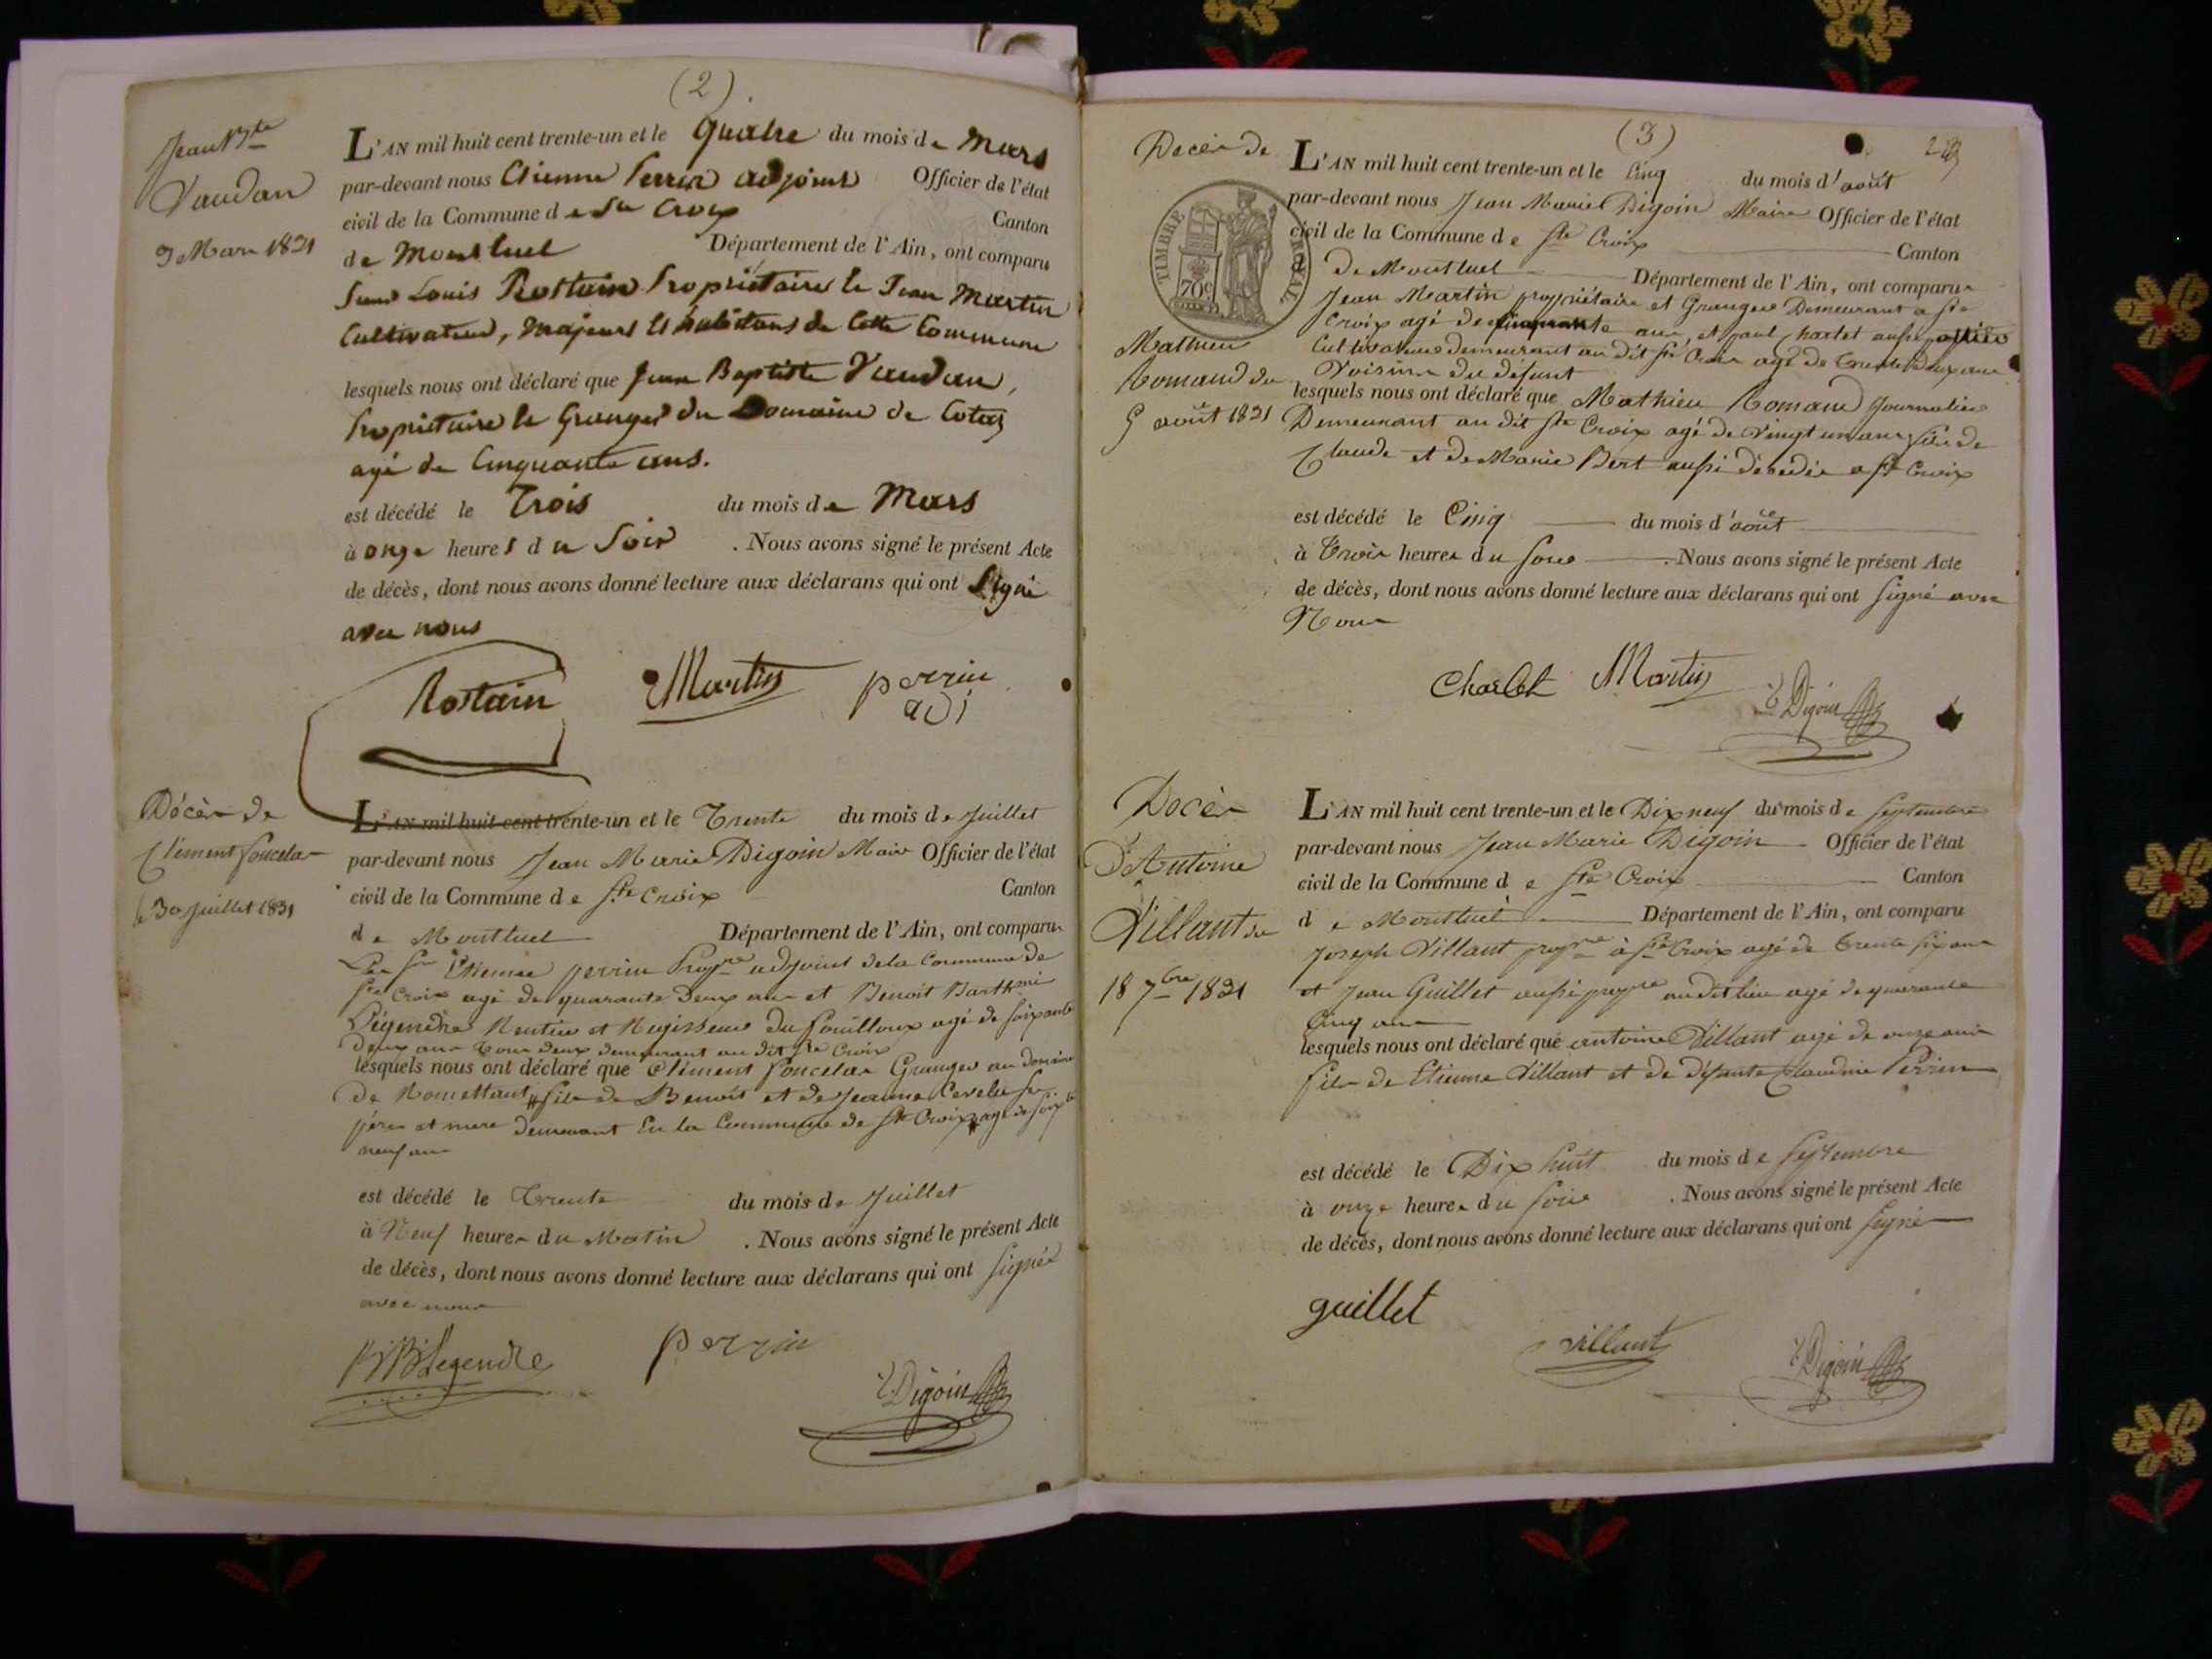 (2)
Jean Bte
Vaudan
3 Mars 1831
L'AN mil huit cent trente-un et le Quatre du mois de Mars
par-devant nous Etienne Perrin adjoint Officier de l'état
civil de la Commune de Ste Croix Canton
de Montluel Département de l'Ain, ont comparu
Louis Rostain Propriétaire et Jean Martin
Cultivateur, majeurs et habitans de cette Commune
lesquels nous ont déclaré que Jean Baptiste Vaudan,
Propriétaire et Granger du Domaine de Cotaz
agé de Cinquante ans.
est décédé le Trois du mois de Mars
à onze heures du Soir . Nous avons signé le présent Acte
de décès, dont nous avons donné lecture aux déclarans qui ont Signé
avec nous
Rostain Martin perrin
adj
Décès de
Clement Poncelas
le 30 Juillet 1831
L'AN mil huit cent trente-un et le Trente du mois de Juillet
par-devant nous Jean Marie Digoin Maire Officier de l'état
civil de la Commune de Ste Croix Canton
de Montluel Département de l'Ain, ont comparus
Les Srs Etienne perrin Propre adjoint de la Commune de
Ste Croix agé de quarante deux ans et Benoit Barthmi
Légendre Rentier et Regisseur du Pouilloux agé de soixante
Deux ans Tous deux demeurant au dit Ste Croix
lesquels nous ont déclaré que Clément Poncelas Granger au domaine
De Romettant fils de Benoit et de Jeanne
pères et mere demeurant En la Commune de Ste Croix agé de soixte
neuf ans
est décédé le Trente du mois de Juillet
à Neuf heures du Matin . Nous avons signé le présent Acte
de décès, dont nous avons donné lecture aux déclarans qui ont signés
avec nous
Legendre perrin
Digoin
(3)
Décès de
TIMBRE ROYAL
70c
Mathieu
Romand du
5 août 1831
L'AN mil huit cent trente-un et le Cinq du mois d'août
par-devant nous Jean Marie Digoin Maire Officier de l'état
civil de la Commune de Ste Croix Canton
De Montluel Département de l'Ain, ont comparus
Jean Martin propriétaire et Granger Demeurant a Ste
Croix agé de cinquante ans, et paul Charlet aussi
Cultivateur demeurant au dit Ste Croix agé de trente deux ans
Voisins du défunt
lesquels nous ont déclaré que Mathieu Romand Journalier
Demeurant au dit Ste Croix agé de vingt un ans fils de
Claude et de Marie Bert aussi décédée a Ste Croix
est décédé le Cinq du mois d'août
à Trois heures du soir . Nous avons signé le présent Acte
de décès, dont nous avons donné lecture aux déclarans qui ont signé avec
Nous
Charlet Martin Digoin
Décès
D'Antoine
Villant du
18 7bre 1831
L'AN mil huit cent trente-un et le Dix neuf du mois de septembre
par-devant nous Jean Marie Digoin Officier de l'état
civil de la Commune de Ste Croix Canton
de Montluel Département de l'Ain, ont comparu
Joseph Villant propre à Ste Croix agé de trente six ans
et Jean Guillet aussi propre au dit lieu agé de quarante
Cinq ans
lesquels nous ont déclaré que antoine Villant agé de onze ans
fils de Etienne Villant et de défunte Claudine Perrin
est décédé le Dix huit du mois de septembre
à onze heures du soir . Nous avons signé le présent Acte
de décès, dont nous avons donné lecture aux déclarans qui ont signé
guillet
villant
Digoin